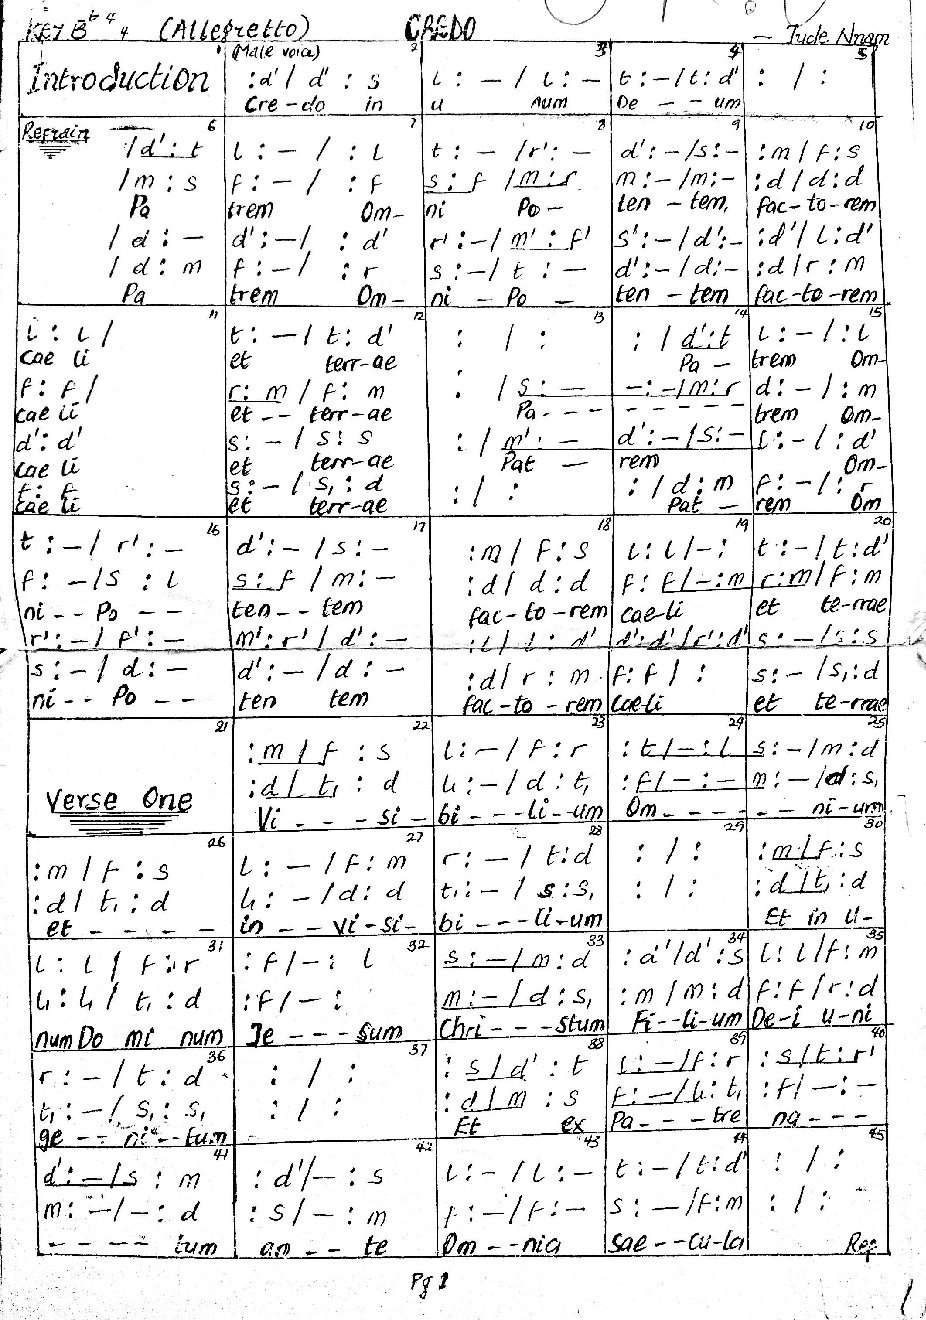 KEY Bb 4/4 (Allegretto) CREDO — Jude Nnam
1 2 3 4 5
(Male voice)
Introduction :d'/ d' : s l : – / l : – t : – / t : d' : / :
Cre-do in u num De - - um
6 7 8 9 10
Refrain
/d' : t l : – / : l t : – /r' : – d' : – /s : – :m / f : s
/m : s f : – / : f s : f /m : r m : – /m : – :d / d : d
Pa trem Om- ni Po- ten - tem, fac-to-rem
/ d : – d' : – / : d' r' : – / m' : f' s' : – / d' : – :d' / l : d'
/ d : m f : – / : r s : – / t : – d' : – / d : – :d / r : m
Pa trem Om- ni - Po - ten - tem fac-to-rem
11 12 13 14 15
l : l / t : – / t : d' : / : : / d' : t l : – / : l
cae li et terr-ae Pa - trem Om-
f : f / r : m / f : m : / s : – – : – /m : r d : – / : m
cae li et - - terr-ae Pa - - - - - - - - trem Om-
d' : d' s : – / s : s : / m' : – d' : – / s : – l : – / : d'
cae li et terr-ae Pat - rem Om-
f : f s : – / s, : d : / : : / d : m f : – / : r
cae li et terr-ae Pat - rem Om
16 17 18 19 20
t : – / r' : – d' : – / s : – :m / f : s l : l / – : t : – / t : d'
f : – / s : l s : f / m : – :d / d : d f : f / – : m r : m / f : m
ni - - Po - - ten - - tem fac-to-rem cae-li et te-rrae
r' : – / f' : – m' : r' / d' : – : l / l : d' d' : d' / r' : d' s : – / s : s
s : – / d : – d' : – / d : – :d / r : m f : f / : s : – / s, : d
ni - - Po - - ten tem fac-to-rem cae-li et te-rrae
21 22 23 24 25
:m / f : s l : – / f : r : t / – : l s : – / m : d
Verse One :d / t, : d l, : – / d : t, : f / – : – m : – / d : s,
Vi - - - si - bi - - - li-um Om - - - - - - - ni-um
26 27 28 29 30
:m / f : s l : – / f : m r : – / t : d : / : :m / f : s
:d / t, : d l, : – / d : d t, : – / s : s, : / : : d / t, : d
et - - - - in - - vi-si- bi - - - li-um Et in li-
31 32 33 34 35
l : l / f : r : f / – : l s : – / m : d : d' / d' : s l : l / f : m
l, : l, / t, : d : f / – : m : – / d : s, : m / m : d f : f / r : d
num Do mi num Je - - - sum Chri - - - stum Fi--li-um De-i u-ni
36 37 38 39 40
r : – / t : d : / : : s / d' : t l : – / f : r : s / t : r'
t, : – / s, : s, : / : : d / m : s f : – / l, : t, : f / – : –
ge - - ni - - tum Et ex Pa - - - tre na - - -
41 42 43 44 45
d' : – / s : m : d' / – : s l : – / l : – t : – / t : d' : / :
m : – / – : d : s / – : m f : – / f : – s : – / f : m : / :
- - - - tum an - - te Om - - nia Sae - - cu-la Ref
Pg 1